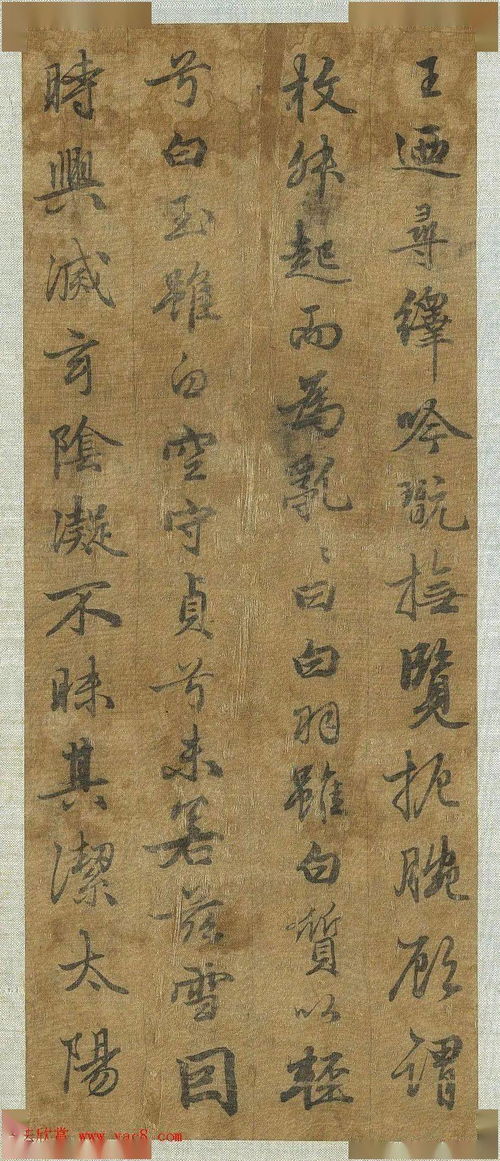 王迺尋繹吟翫撫覽扼腕顧謂
枚叔起而為亂〻曰白羽雖白質以輕
兮白玉雖白空守貞兮未若茲雪因
時興滅玄陰凝不昧其潔太陽
欣赏 www.yac8.com